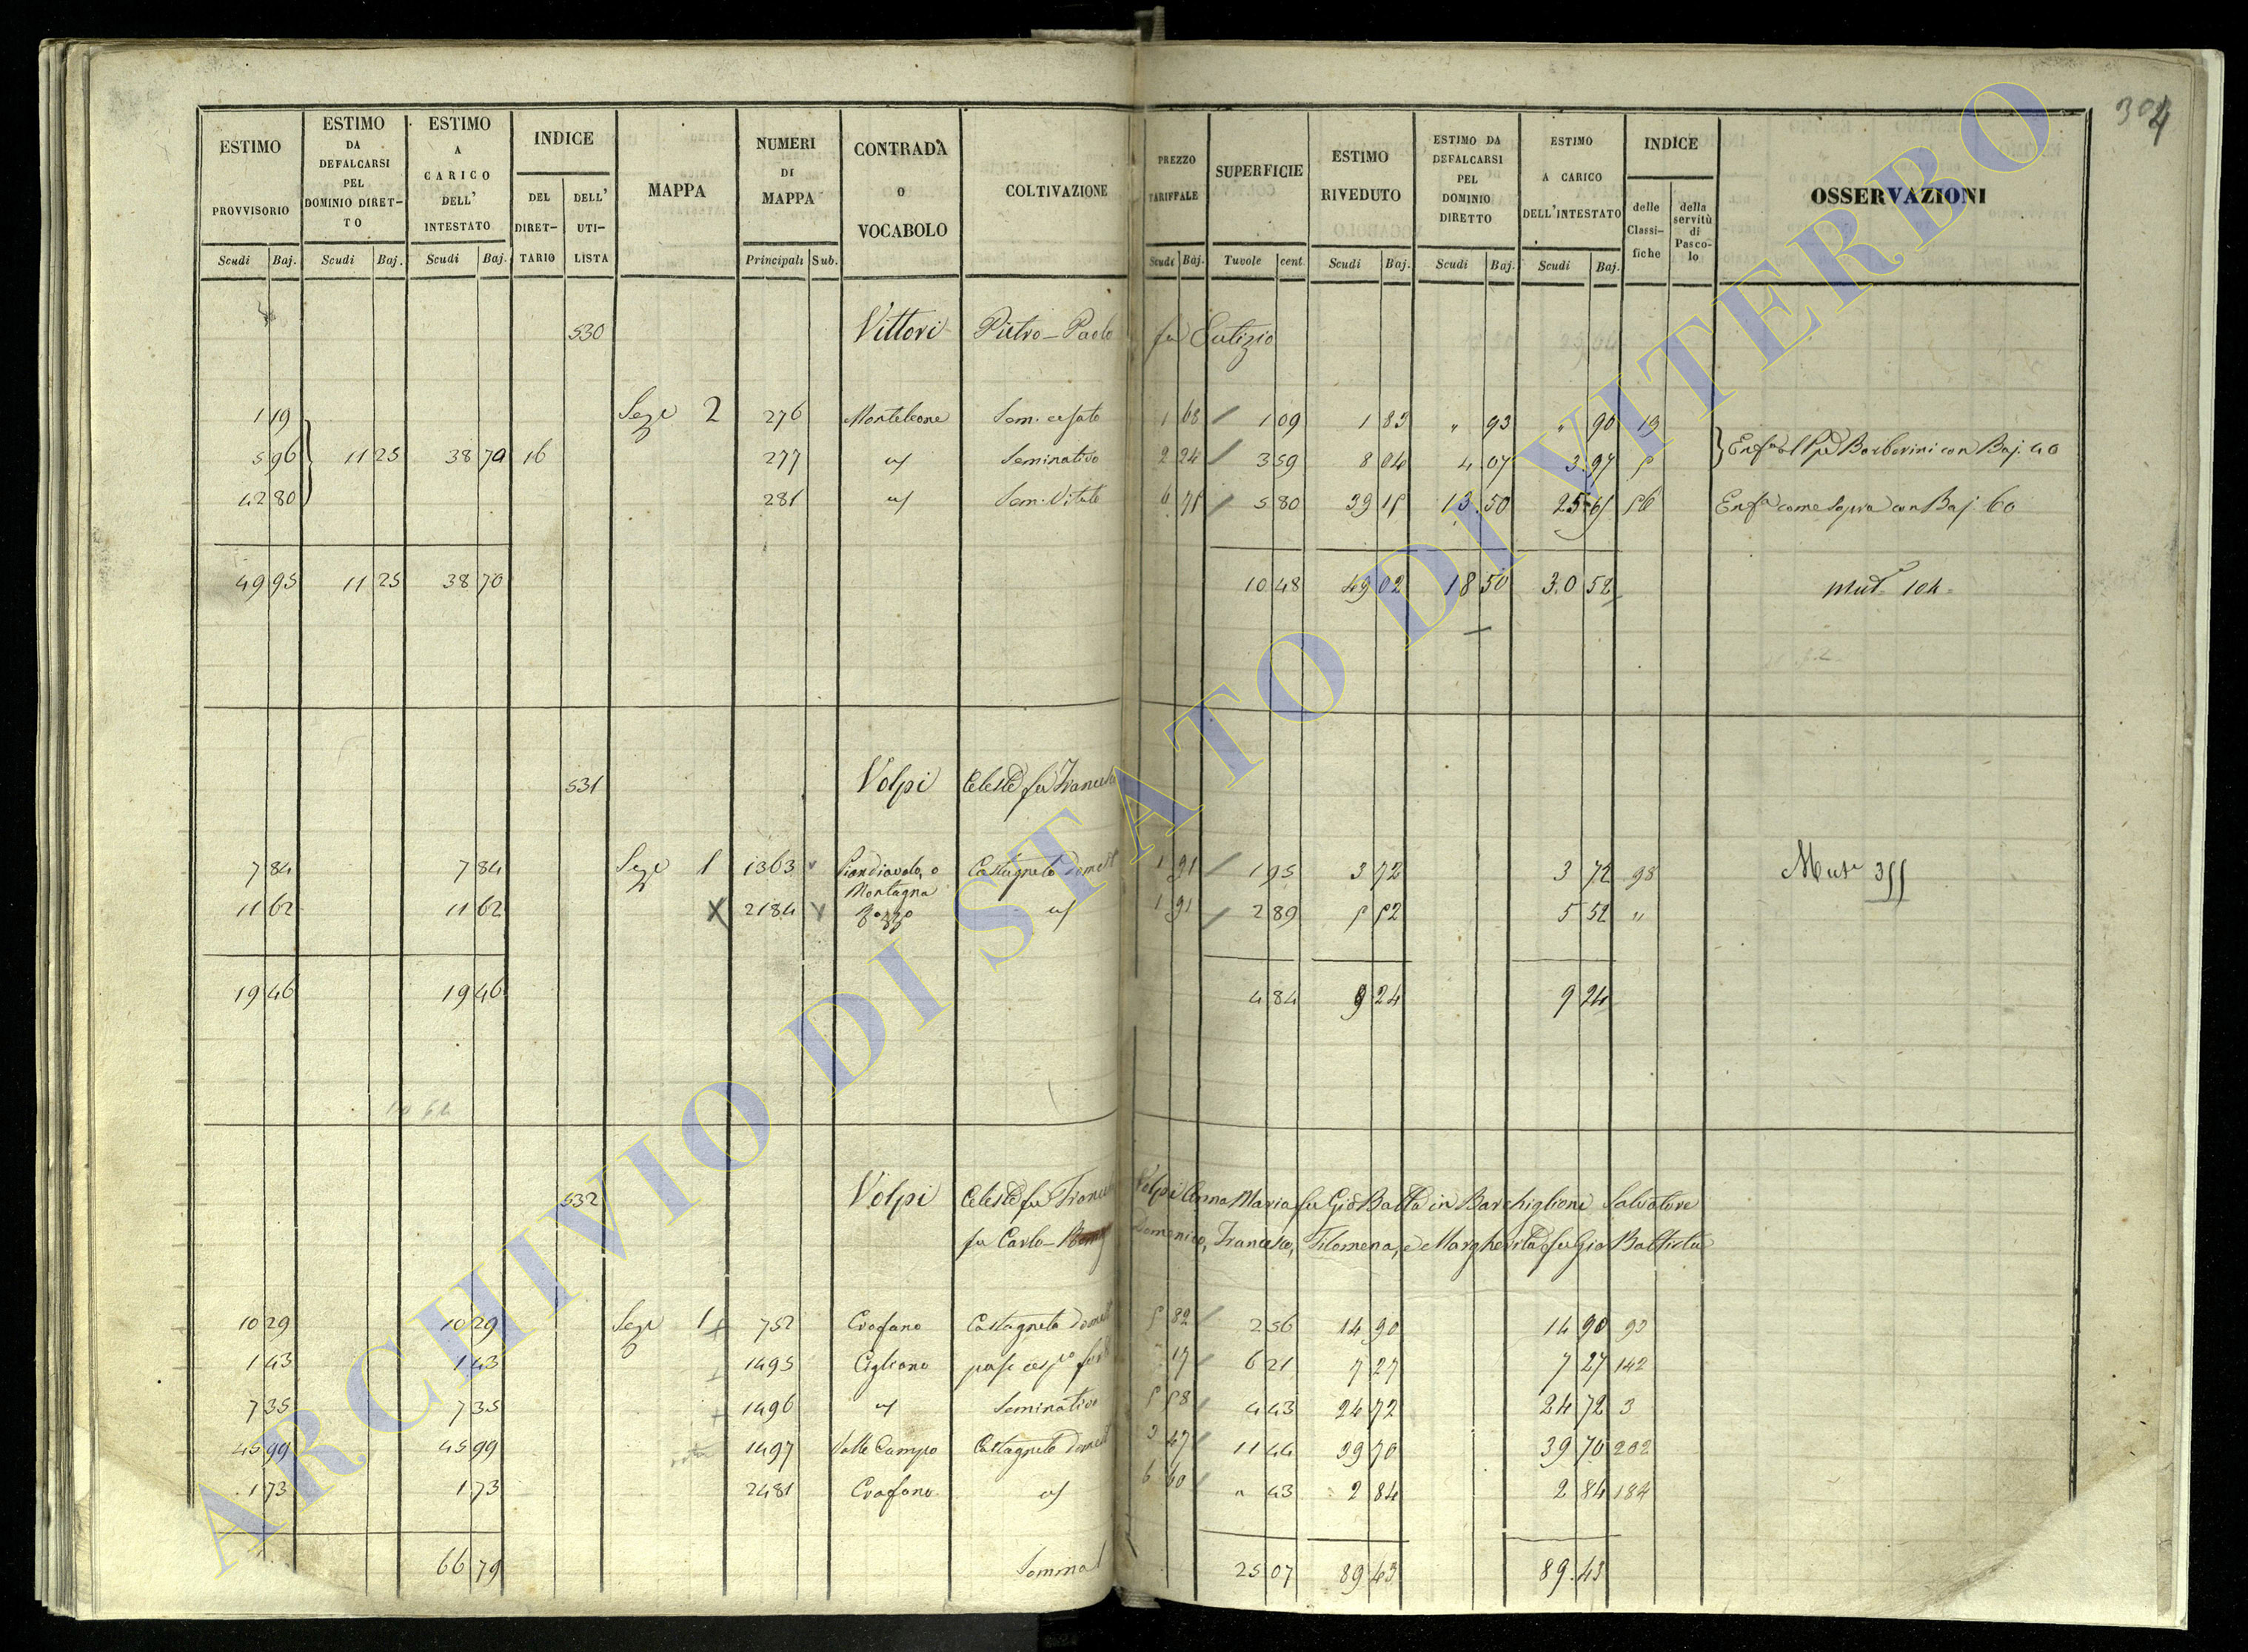 304
ESTIMO PROVVISORIO
ESTIMO DA DEFALCARSI PEL DOMINIO DIRET-TO
ESTIMO A CARICO DELL' INTESTATO
INDICE
DEL DIRET-TARIO
DELL' UTI-LISTA
MAPPA
NUMERI DI MAPPA
CONTRADA O VOCABOLO
COLTIVAZIONE
PREZZO TARIFFALE
SUPERFICIE
ESTIMO RIVEDUTO
ESTIMO DA DEFALCARSI PEL DOMINIO DIRETTO
ESTIMO A CARICO DELL'INTESTATO
INDICE
delle Classi-fiche
della servitù di Pasco-lo
OSSERVAZIONI
Scudi Baj. Scudi Baj. Scudi Baj. Principali Sub. Scudi Baj. Tavole cent. Scudi Baj. Scudi Baj. Scudi Baj.
530 Vittori Pietro-Paolo fu Eutizio
1 19 Seze 2 276 Monteleone Sem. cesato 1 68 1 09 1 83 " 93 " 90 19
5 96 11 25 38 70 16 277 Seminativo 2 24 3 59 8 04 4 07 3 97 Barberini con Baj. 40
42 80 281 Sem. Vitato 5 80 39 15 13 50 come sopra con Baj. 60
49 95 11 25 38 70 10 48 49 02 18 50 30 52 Mut. 104
531 Volpi Celeste fu Francesco
7 84 7 84 Seze 1 1363 Piandiavolo, o Montagna Castagneto Domest 1 91 1 95 3 72 3 72 98
11 62 11 62 X 2184 Pozzo 1 91 2 89 5 52 5 52 "
19 46 19 46 4 84 9 24 9 24
532 Volpi Celeste fu Francesco Volpi Anna Maria fu Gio Batta in Barchiglione Salvatore
fu Carlo Domenico, Francesco, Filomena, e Margherita fu Gio Battista
10 29 10 29 Seze 1 752 Crofano Castagneto Domest 5 82 2 56 14 90 14 90 93
1 43 1 43 1495 Cigliano 6 21 7 27 7 27 142
7 35 7 35 1496 Seminativo 5 58 4 43 24 72 24 72 3
45 99 45 99 1497 Valle Campo Castagneto Domest 3 47 11 44 39 70 39 70 202
1 73 1 73 2481 Crofano 6 60 " 43 2 84 2 84 184
66 79 Somma 25 07 89 43 89 43
ARCHIVIO DI STATO DI VITERBO